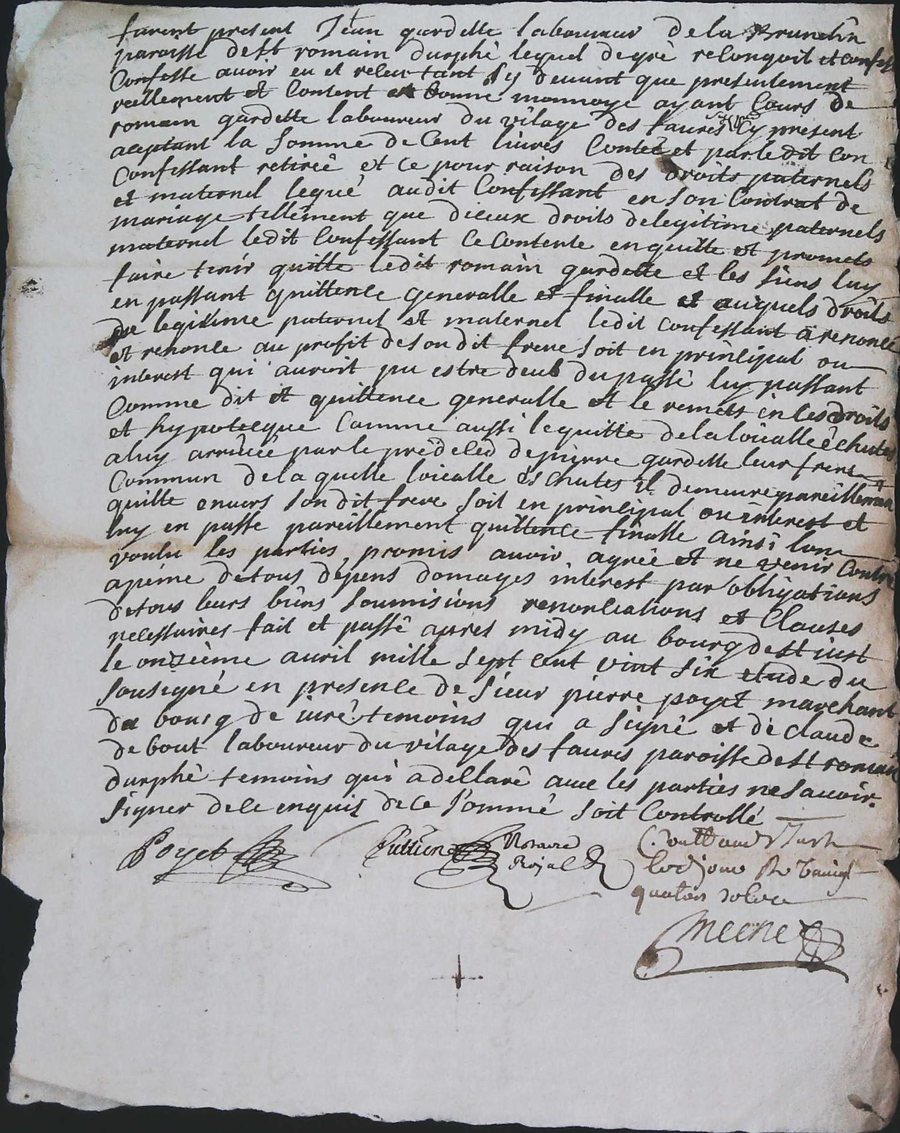 furent present Jean gardette laboureur de la
paroisse de st romain durphé lequel de gré reconnoit et confesse
Confesse avoir eu et receu tant sy devant que presentement
reellement et Content en bonne monnoye ayant Cours de
romain gardette laboureur du vilage des faures Cy present
aceptant la Somme de Cent livres Conteé et par le dit con
Confessant retireé et ce pour raison des droits paternels
et maternel legué audit Confessant en son Contrat de
mariage tellement que diceux droits de legitime paternels
maternel ledit Confessant Ce Contente en quitte et promets
faire tenir quitte ledit romain gardette et les siens luy
en passant quittence generalle et finalle et auxquels droits
de legitime paternel et maternel ledit confessant a renoncé
et renonce au profit de son dit frere soit en principal ou
interest qui auroit pu estre deub du passé luy passant
Comme dit et quittence generalle et le remets en ses droits
et hypotecque Comme aussi le quitte de la loicalle échutes
a luy arriveé par le prédeced de pierre gardette leur frere
Commun de la quelle loicalle éschutes il demeure pareillement
quitte envers son dit frere soit en principal ou interest et
luy en passe pareillement quittence finalle ainsi lon
voulu les parties promis avoir agreé et ne venir Contre
apeine de tous dépens domages interest par obligations
de tous leurs biens soumisions renonciations et Clauses
necessaires fait et passé apres midy au bourg de st just
le onzième avril mille sept cent vint six etude du
sousigné en presence de sieur pierre poyet marchant
du bourg de iuré temoins qui a signé et de Claude
de bout laboureur du vilage des faures paroisse de st romain
durphé temoins qui a dellaré avec les parties ne savoir
signer de ce enquis de ce sommé soit Controllé
Poyet Notaire Royal